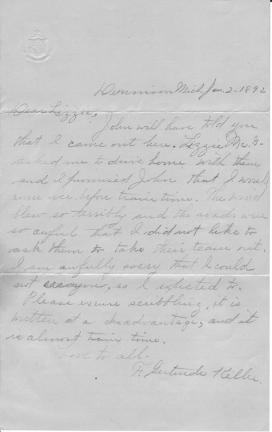 Dennison Mich Jan. 2 - 1892
Dear Lizzie,
John will have told you
that I came out here. Lizzie Mc
asked me to drive home with them
and I promised John that I would
come over before train time. The wind
blew so terribly and the roads were
so awful that I did not like to
ask them to take their team out.
I am awfully sorry that I could
not , as I expected to.
Please excuse scribbling, it is
written at a disadvantage, and it
is almost train time.
Love to all.
Gertrude Keller